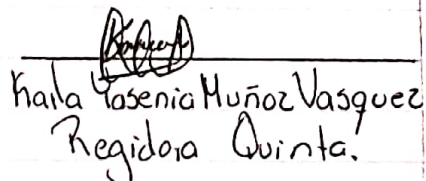 Karla Yosenia Muñoz Vasquez
Regidora Quinta.